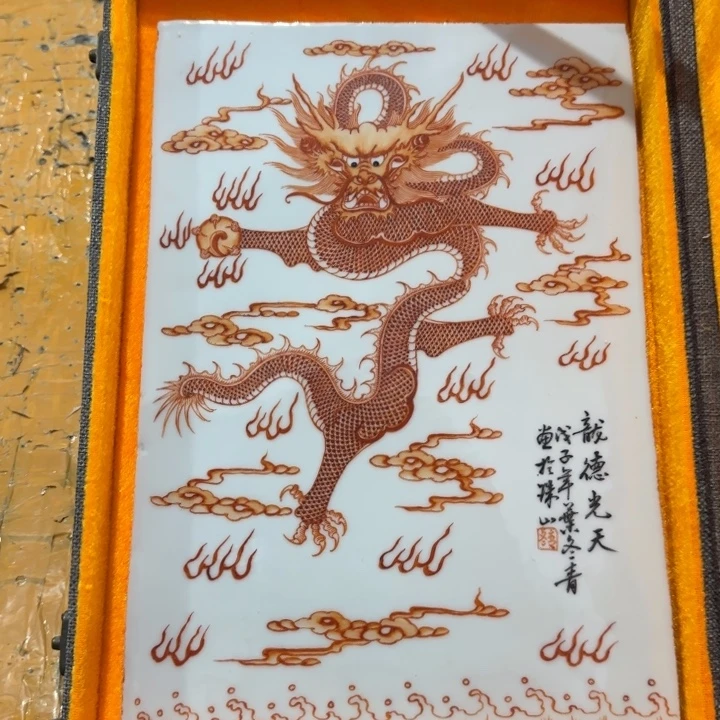 龍德光天
戊子年葉冬青
畫於珠山